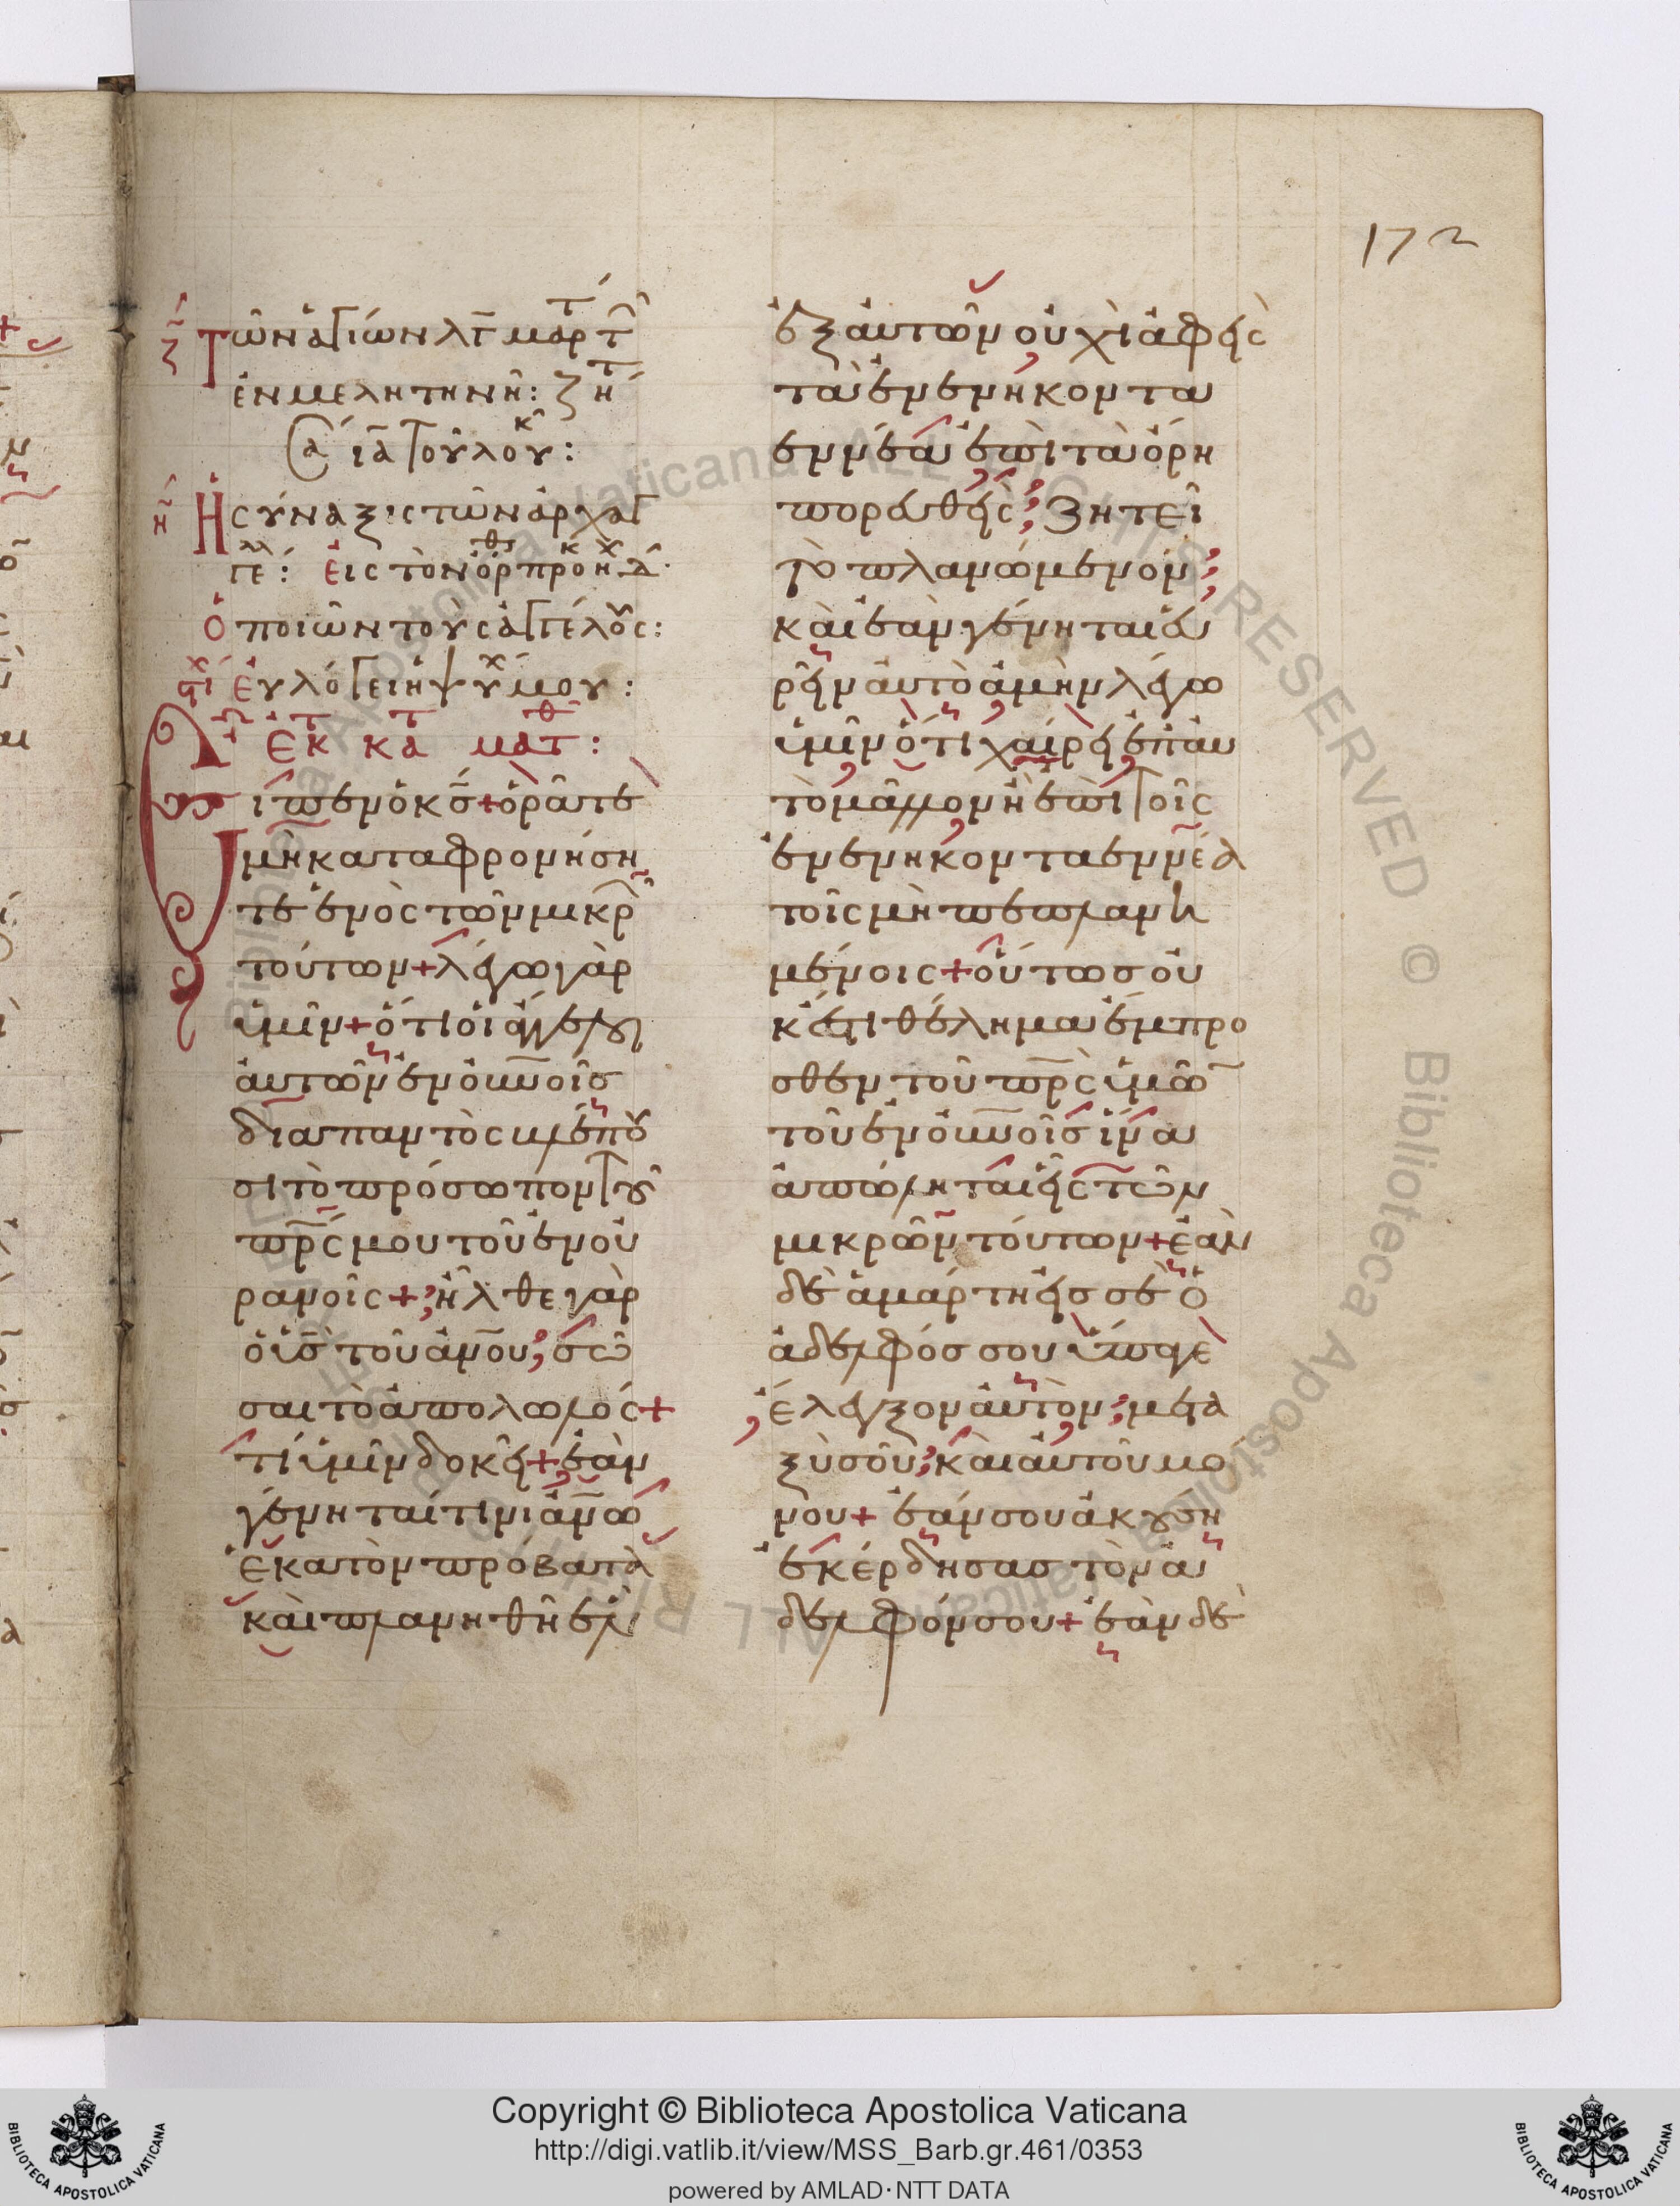 172
ζ Τῶν ἁγίων λγ μαρτ
ἐν μελητηνῆ: ζητ
@ ἰα ἰουλου:
η Ἡ σύναξις τῶν ἀρχαγ
γε: εἰς τὸν ὀρθ προκ ηχ δ
ὁ ποιῶν τοὺς ἀγγέλους:
στιχ εὐλόγει ἡ ψυχη μου:
Ἐκ τ κατ ματθ:
Εἶπεν ὁ κς + ὁρᾶτε
μὴ καταφρονήση
τε ἑνὸς τῶν μικρ
τούτων + λέγω γὰρ
ὑμῖν + ὅτι οἱ ἄγγελοι
αὐτῶν ἐν οὐνοῖσ
διαπαντὸς βλέπου
σι τὸ πρόσωπον τοῦ
πρς μου τοῦ ἐν οὐ
ρανοῖς + ἦλθε γὰρ
ὁ υἱσ τοῦ ἀνου σῶ
σαι τὸ ἀπολωλός +
τί ὑμῖν δοκεῖ + ἐὰν
γένηταί τινι ἀνω
ἑκατὸν πρόβατα
καὶ πλανηθῆ ἓν
ἐξ αὐτῶν οὐχὶ ἀφεὶς
τὰ ἐνενήκοντα
εννέα ἐπὶ τὰ ὄρη
πορευθεὶς Ζητεῖ
τὸ πλανώμενον
καὶ ἐὰν γένηται εὑ
ρεῖν αὐτὸ ἀμὴν λέγω
ὑμῖν ὅτι χαίρει ἐπ αὐ
τὸ μᾶλλον ἢ ἐπὶ τοῖς
ἐνενήκοντα εννέα
τοῖς μὴ πεπλανη
μένοις + οὕτωσ οὐ
κ έστι θέλημα ἔμπρο
σθεν τοῦ πρς ὑμῶ
τοῦ ἐν οὐνοῖσ ἵνα
ἀπόληται εἷς τῶν
μικρῶν τούτων + ἐὰν
δὲ ἁμάρτη εἰσ σὲ ὁ
ἀδελφόσ σου ὕπαγε
ἔλεγξον αὐτὸν μετα
ξὺ σοῦ καὶ αὐτοῦ μο
νου + ἐάν σου ἀκούση
ἐκέρδησασ τὸν ἀ
δελφόν σου + ἐὰν δὲ
Copyright © Biblioteca Apostolica Vaticana
http://digi.vatlib.it/view/MSS_Barb.gr.461/0353
powered by AMLAD·NTT DATA
BIBLIOTECA APOSTOLICA VATICANA
BIBLIOTECA APOSTOLICA VATICANA